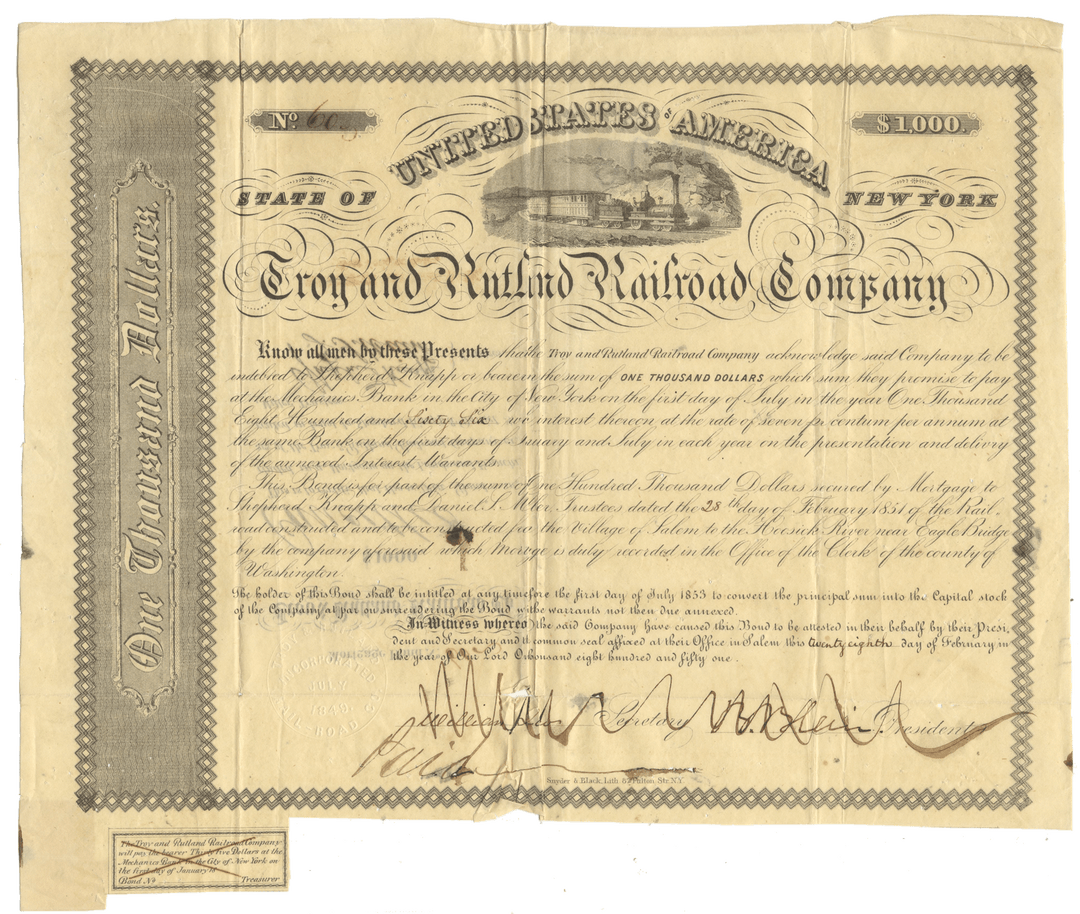 No. 60
$1,000.
UNITED STATES OF AMERICA
STATE OF NEW YORK
Troy and Rutland Railroad Company
One Thousand Dollars.
Know all men by these Presents that the Troy and Rutland Railroad Company acknowledge said Company to be
indebted to Shepherd Knapp or bearer in the sum of ONE THOUSAND DOLLARS which sum they promise to pay
at the Mechanics Bank in the City of New York on the first day of July in the year One Thousand
Eight Hundred and Sixty Six interest thereon at the rate of seven centum per annum at
the same Bank on the first days of and July in each year on the presentation and delivery
of the annexed Interest Warrants
This Bond is for part of the sum of Hundred Thousand Dollars secured by Mortgage to
Shepherd Knapp and Daniel S. Trustees dated the 28th day of February 1851 of the Rail-
road constructed and to be constructed the Village of Salem to the Hoosick River near Eagle Bridge
by the company which is duly recorded in the Office of the Clerk of the county of
Washington.
The holder of this Bond shall be intitled at any time the first day of July 1853 to convert the principal sum into the Capital stock
of the Company at par on surrendering the Bond the warrants not then due annexed.
In Witness whereof the said Company have caused this Bond to be attested in their behalf by their Presi-
dent and Secretary and common seal affixed at their Office in Salem this twenty eighth day of February in
the year of Our Lord eight hundred and fifty one.
INCORPORATED
JULY
1849.
RAIL ROAD
William Secretary President
Paid
Snyder & Black, Lith. Fulton Str. N.Y.
The Troy and Rutland Railroad Company
will pay the bearer Thirty five Dollars at the
Mechanics Bank in the City of New York on
the first day of January 18
Bond No. Treasurer